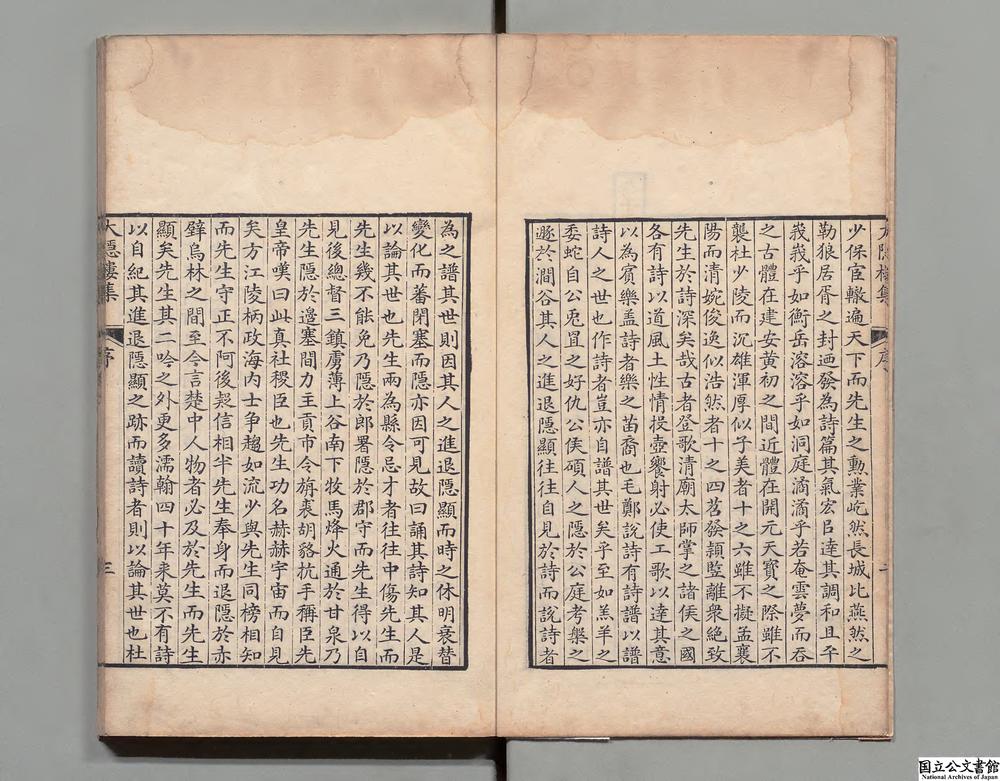 少保宦轍遍天下而先生之勲業屹然長城比燕然之
勒狼居胥之封迺發為詩篇其氣宏臣達其調和且平
峩峩乎如衡岳溶溶乎如洞庭潏潏乎若奄雲夢而吞
之古體在建安黄初之間近體在開元天寳之際雖不
襲杜少陵而沉雄渾厚似子美者十之六雖不擬孟襄
陽而清婉俊逸似浩然者十之四苕發穎竪離衆絶致
先生於詩深矣哉古者登歌清廟太師掌之諸侯之國
各有詩以道風土性情投壺饗射必使工歌以達其意
以為賓樂盖詩者樂之苗裔也毛鄭説詩有詩譜以譜
詩人之世也作詩者豈亦自譜其世矣乎至如羔羊之
委蛇自公兎罝之好仇公侯碩人之隠於公庭考槃之
遯於澗谷其人之進退隠顯往往自見於詩而説詩者
大隠樓集
序
二
為之譜其世則因其人之進退隠顯而時之休明衰替
變化而蕃閉塞而隠亦因可見故曰誦其詩知其人是
以論其世也先生兩為縣令忌才者往往中傷先生而
先生幾不能免乃隠於郎署隠於郡守而先生得以自
見後總督三鎮虜薄上谷南下牧馬烽火通於甘泉乃
先生隠於邉塞間力主貢市令旃裘胡貉抗手稱臣先
皇帝嘆曰此真社稷臣也先生功名赫赫宇宙而自見
矣方江陵柄政海内士争趨如流少與先生同榜相知
而先生守正不阿後疑信相半先生奉身而退隠於赤
壁烏林之間至今言楚中人物者必及於先生而先生
顯矣先生其二吟之外更多濡翰四十年来莫不有詩
以自紀其進退隠顯之跡而讀詩者則以論其世也杜
大隠樓集
序
三
国立公文書館
National Archives of Japan